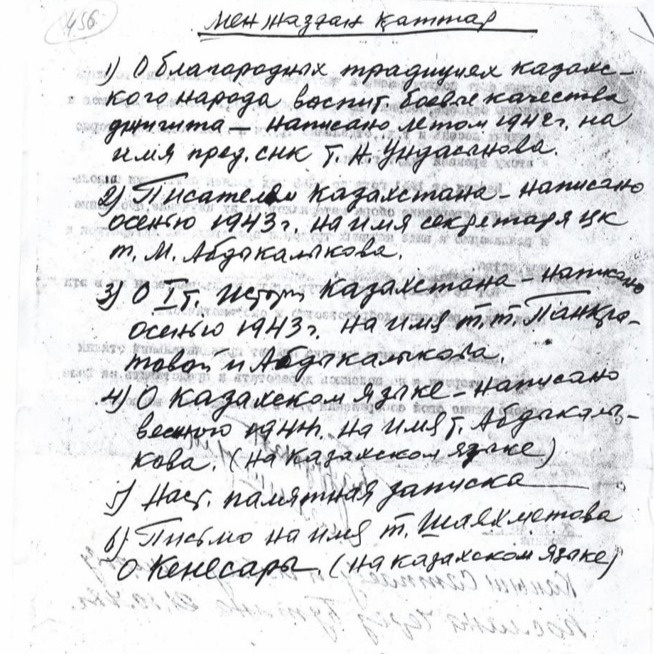 456
Мен жаздан қаттар
1) О благородных традициях казахс-
кого народа воспит. боевые качества
джигита — написано летом 1942г. на
имя пред. снк т. Н. Ундасынова.
2) Писателям Казахстана - написано
осенью 1943г. на имя секретаря цк
т. М. Абдыкалыкова.
3) О I т. Истори Казахстана - написано
осенью 1943г. на имя т.т. Панкра-
товой и Абдыкалыкова.
4) О казахском языке - написано
весною 1944. на имя т. Абдыкалы-
кова. (на казахском языке)
5) Наст. памятная записка
6) Письмо на имя т. Шаяхметова
О Кенесары (на казахском языке)